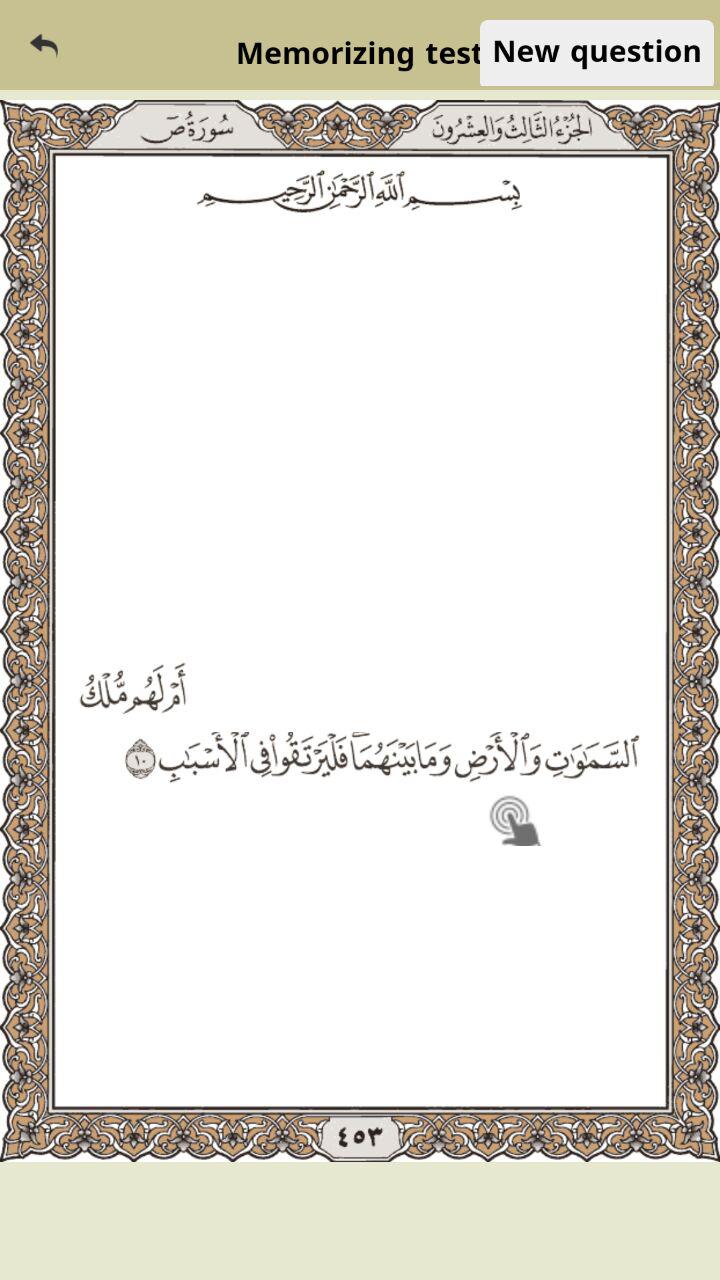 Memorizing test
New question
سُورَةُ صٓ
الجُزْءُ الثَّالِثُ وَالعِشْرُونَ
بِسْمِ ٱللَّهِ ٱلرَّحْمَٰنِ ٱلرَّحِيمِ
أَمْ لَهُم مُّلْكُ
ٱلسَّمَٰوَٰتِ وَٱلْأَرْضِ وَمَا بَيْنَهُمَا ۖ فَلْيَرْتَقُوا۟ فِى ٱلْأَسْبَٰبِ ١٠
٤٥٣